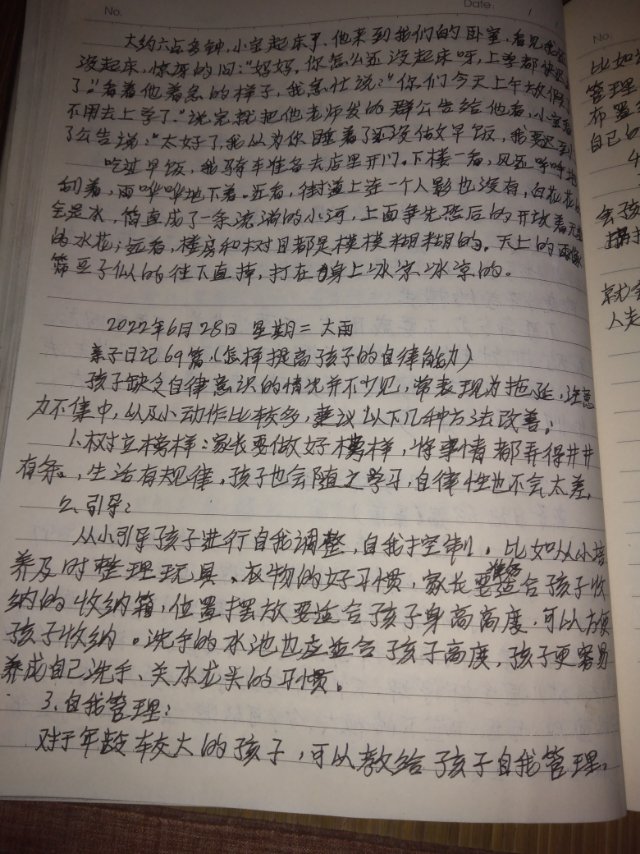 No.
Date.
大约六点多钟,小宝起床了,他来到我们的卧室,看见
没起床,惊讶的问:"妈妈,你怎么还没起床呀,上学都快
了."看着他着急的样子,我急忙说:"你们今天上午放假
不用去上学了."说完我把他老师发的群公告给他看,小宝看
了公告说:"太好了,我以为你睡着了还没做早饭,我要
吃过早饭,我骑车准备去店里开门。下楼一看,风
刮着,雨哗哗地下着。近看,街道上连一个人影也没有,白花花的
全是水,简直成了一条流淌的小河,上面争先恐后的开放着
的水花;远看,楼房和树目都是模模糊糊的。天上的雨像
筛豆子似的往下直掉,打在身上冰凉冰凉的。
2022年6月28日 星期二 大雨
亲子日记69篇(怎样提高孩子的自律能力)
孩子缺乏自律意识的情况并不少见,常表现为拖延,注意
力不集中,以及小动作比较多,建议以下几种方法改善:
1.树立榜样:家长要做好榜样,将事情都弄得井井
有条,生活有规律,孩子也会随之学习,自律性也不会太差。
2.引导:
从小引导孩子进行自我调整,自我控制。比如从小培
养及时整理玩具、衣物的好习惯,家长要准备适合孩子收
纳的收纳箱,位置摆放要适合孩子身高高度,可以方便
孩子收纳。洗手的水池也应适合孩子高度,孩子更容易
养成自己洗手、关水龙头的习惯。
3.自我管理:
对于年龄较大的孩子,可以教给孩子自我管理,
No.
比如
管理
布置
自己的
会孩
拥抱
就会
人走